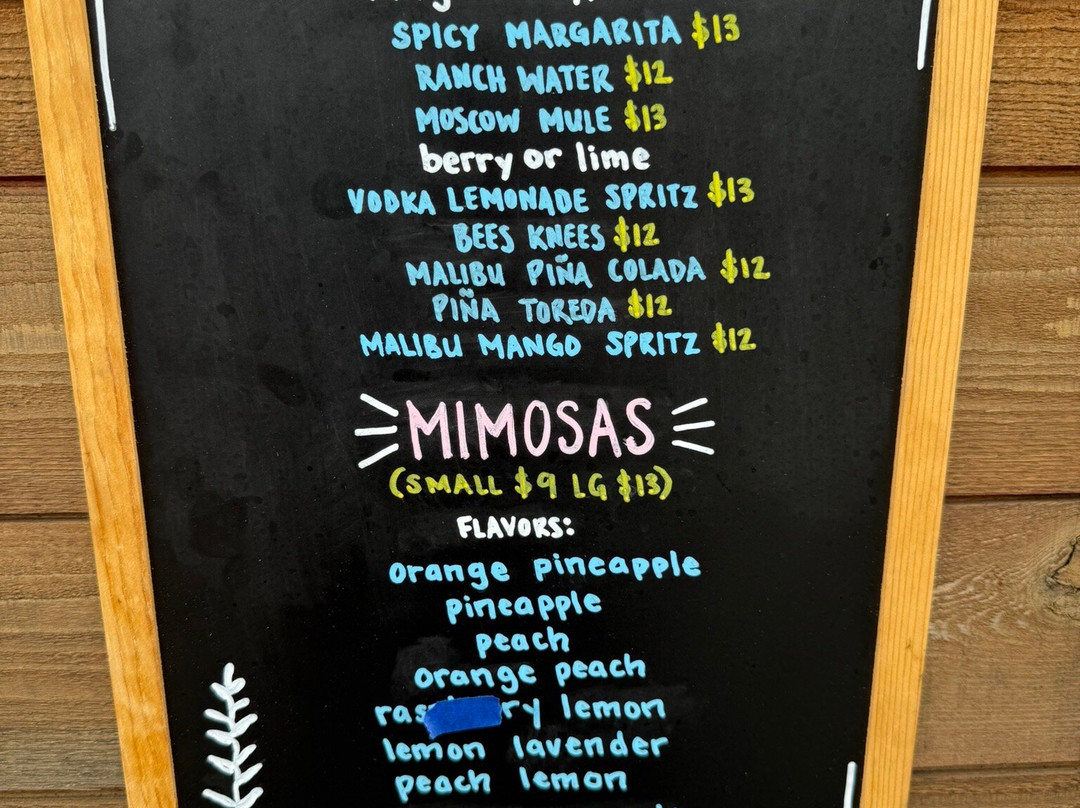 SPICY MARGARITA $13
RANCH WATER $12
MOSCOW MULE $13
berry or lime
VODKA LEMONADE SPRITZ $13
BEES KNEES $12
MALIBU PIÑA COLADA $12
PIÑA TOREDA $12
MALIBU MANGO SPRITZ $12
MIMOSAS
(SMALL $9 LG $13)
FLAVORS:
orange pineapple
pineapple
peach
orange peach
lemon
lemon lavender
peach lemon